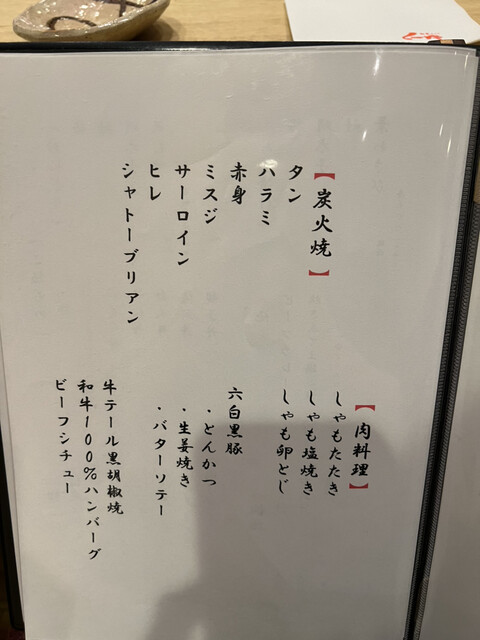 【炭火焼】
タン
ハラミ
赤身
ミスジ
サーロイン
ヒレ
シャトーブリアン
【肉料理】
しゃもたたき
しゃも塩焼き
しゃも卵とじ
六白黒豚
・とんかつ
・生姜焼き
・バターソテー
牛テール黒胡椒焼
和牛100%ハンバーグ
ビーフシチュー